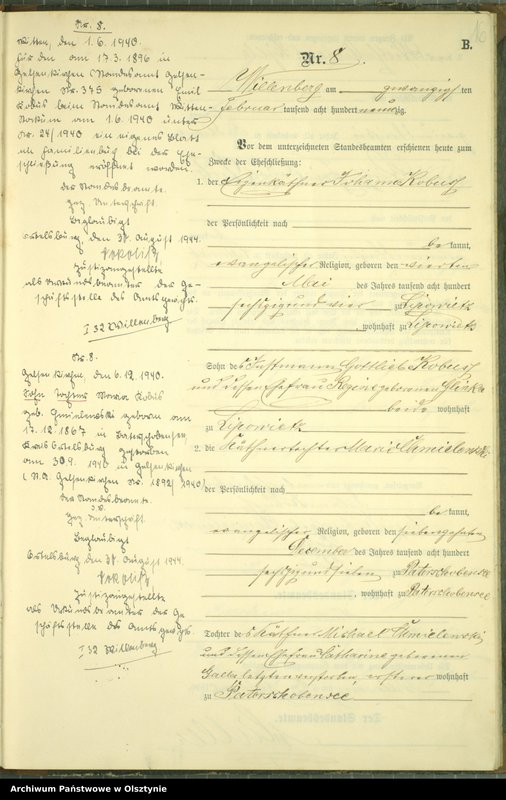 Nr. 8.
Witten, den 1. 6. 1940.
Für den am 17. 3. 1896 in
Gelsenkirchen (Standesamt Gelsen-
kirchen Nr. 345 geborenen Emil
Kobus beim Standesamt Witten-
am 1.6. 1940 unter
Nr. 24/1940 ein eigenes Blatt
im Familienbuch bei der Ehe-
schließung eröffnet worden.
Der Standesbeamte.
gez. Unterschrift
Beglaubigt
Ortelsburg, den 31. August 1944.
Justizangestellte
als Urkundsbeamter der Ge-
schäftsstelle des Amtsgerichts.
I 32 Willenberg
Nr. 8.
Gelsenkirchen, den 6. 12. 1940.
Kobus
geb. Gmielewski geboren am
17. 12. 1867 in Paterschobensee,
Kreis Ortelsburg gestorben
am 30.9. 1940 in Gelsenkirchen
(St.A. Gelsenkirchen Nr. 1892/1940)
Der Standesbeamte.
gez. Unterschrift
Beglaubigt
Ortelsburg, den 31. August 1944.
Justizangestellte
als Urkundsbeamter der Ge-
schäftsstelle des Amtsgerichts.
I 32 Willenberg
B.
Nr. 8
Willenberg am zwanzig ten
Februar tausend acht hundert neunzig.
Vor dem unterzeichneten Standesbeamten erschienen heute zum
Zwecke der Eheschließung:
1. der Eigenkäthner Johann Kobus
der Persönlichkeit nach
be kannt,
evangelischer Religion, geboren den vierten
Mai des Jahres tausend acht hundert
sechszig und vier zu Lipowietz
, wohnhaft zu Lipowietz
Sohn des Instmann Gottlieb Kobus
und dessen Ehefrau Regine geborenen Glinka
beide wohnhaft
zu Lipowietz
2. die Käthnertochter Marie Chmielewski
der Persönlichkeit nach
be kannt,
evangelischer Religion, geboren den siebenzehnten
Dezember des Jahres tausend acht hundert
sechszig und sieben zu Paterschobensee
, wohnhaft zu Paterschobensee
Tochter des Käthner Michael Chmielewski
und dessen Ehefrau Catharine geborenen
Galla letztere verstorben, ersterer wohnhaft
zu Paterschobensee
Archiwum Państwowe w Olsztynie